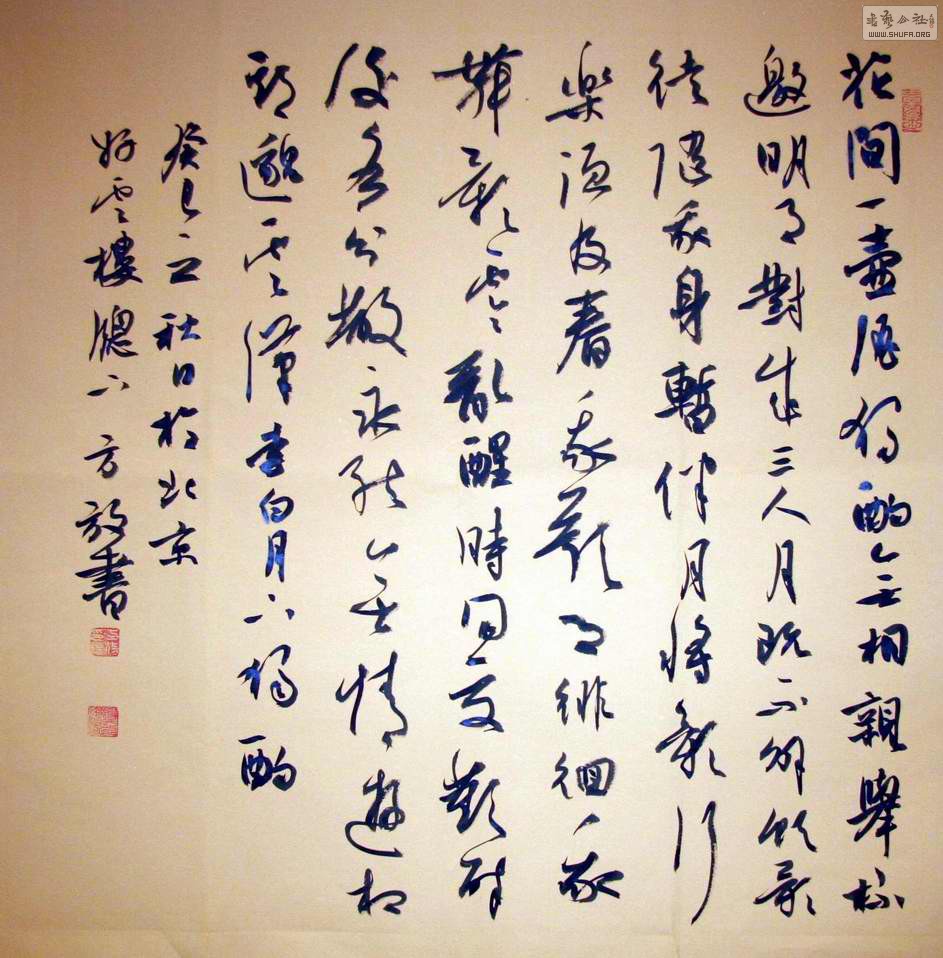 花間一壺酒獨酌無相親舉杯
邀明月對成三人月既不解飲影
徒隨我身暫伴月將影行
樂須及春我歌月徘徊我
舞影零亂醒時同交歡醉
後各分散永結無情遊相
期邈雲漢李白月下獨酌
癸巳之秋日於北京
好雲樓牕下 方放書
書藝公社
WWW.SHUFA.ORG